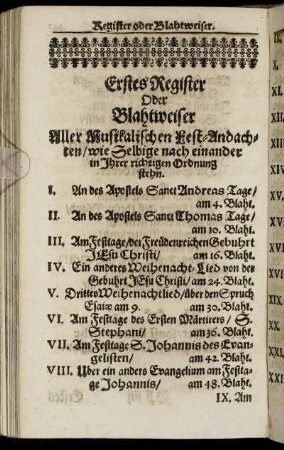 Register oder Blahtweiser.
Erstes Register
Oder
Blahtweiser
Aller Musikalischen Fest-Andach-
ten/ wie Selbige nach einander
in Ihrer richtigen Ordnung
stehn.
I. An des Apostels Sanct Andreas Tage/
am 4. Blaht.
II. An des Apostels Sanct Thomas Tage/
am 10. Blaht.
III. Am Festtage/ der Freudenreichen Gebuhrt
JEsu Christi/ am 16. Blaht.
IV. Ein anderes Weihenacht-Lied von der
Gebuhrt JEsu Christi/ am 24. Blaht.
V. Drittes Weihenachtlied/ über den Spruch
Esaiæ am 9. am 30. Blaht.
VI. Am Festtage des Ersten Märtirers/ S.
Stephani/ am 36. Blaht.
VII. Am Festtage S. Johannis des Evan-
gelisten/ am 42. Blaht.
VIII. Über ein anders Evangelium am Festta-
ge Johannis/ am 48. Blaht.
IX. Am